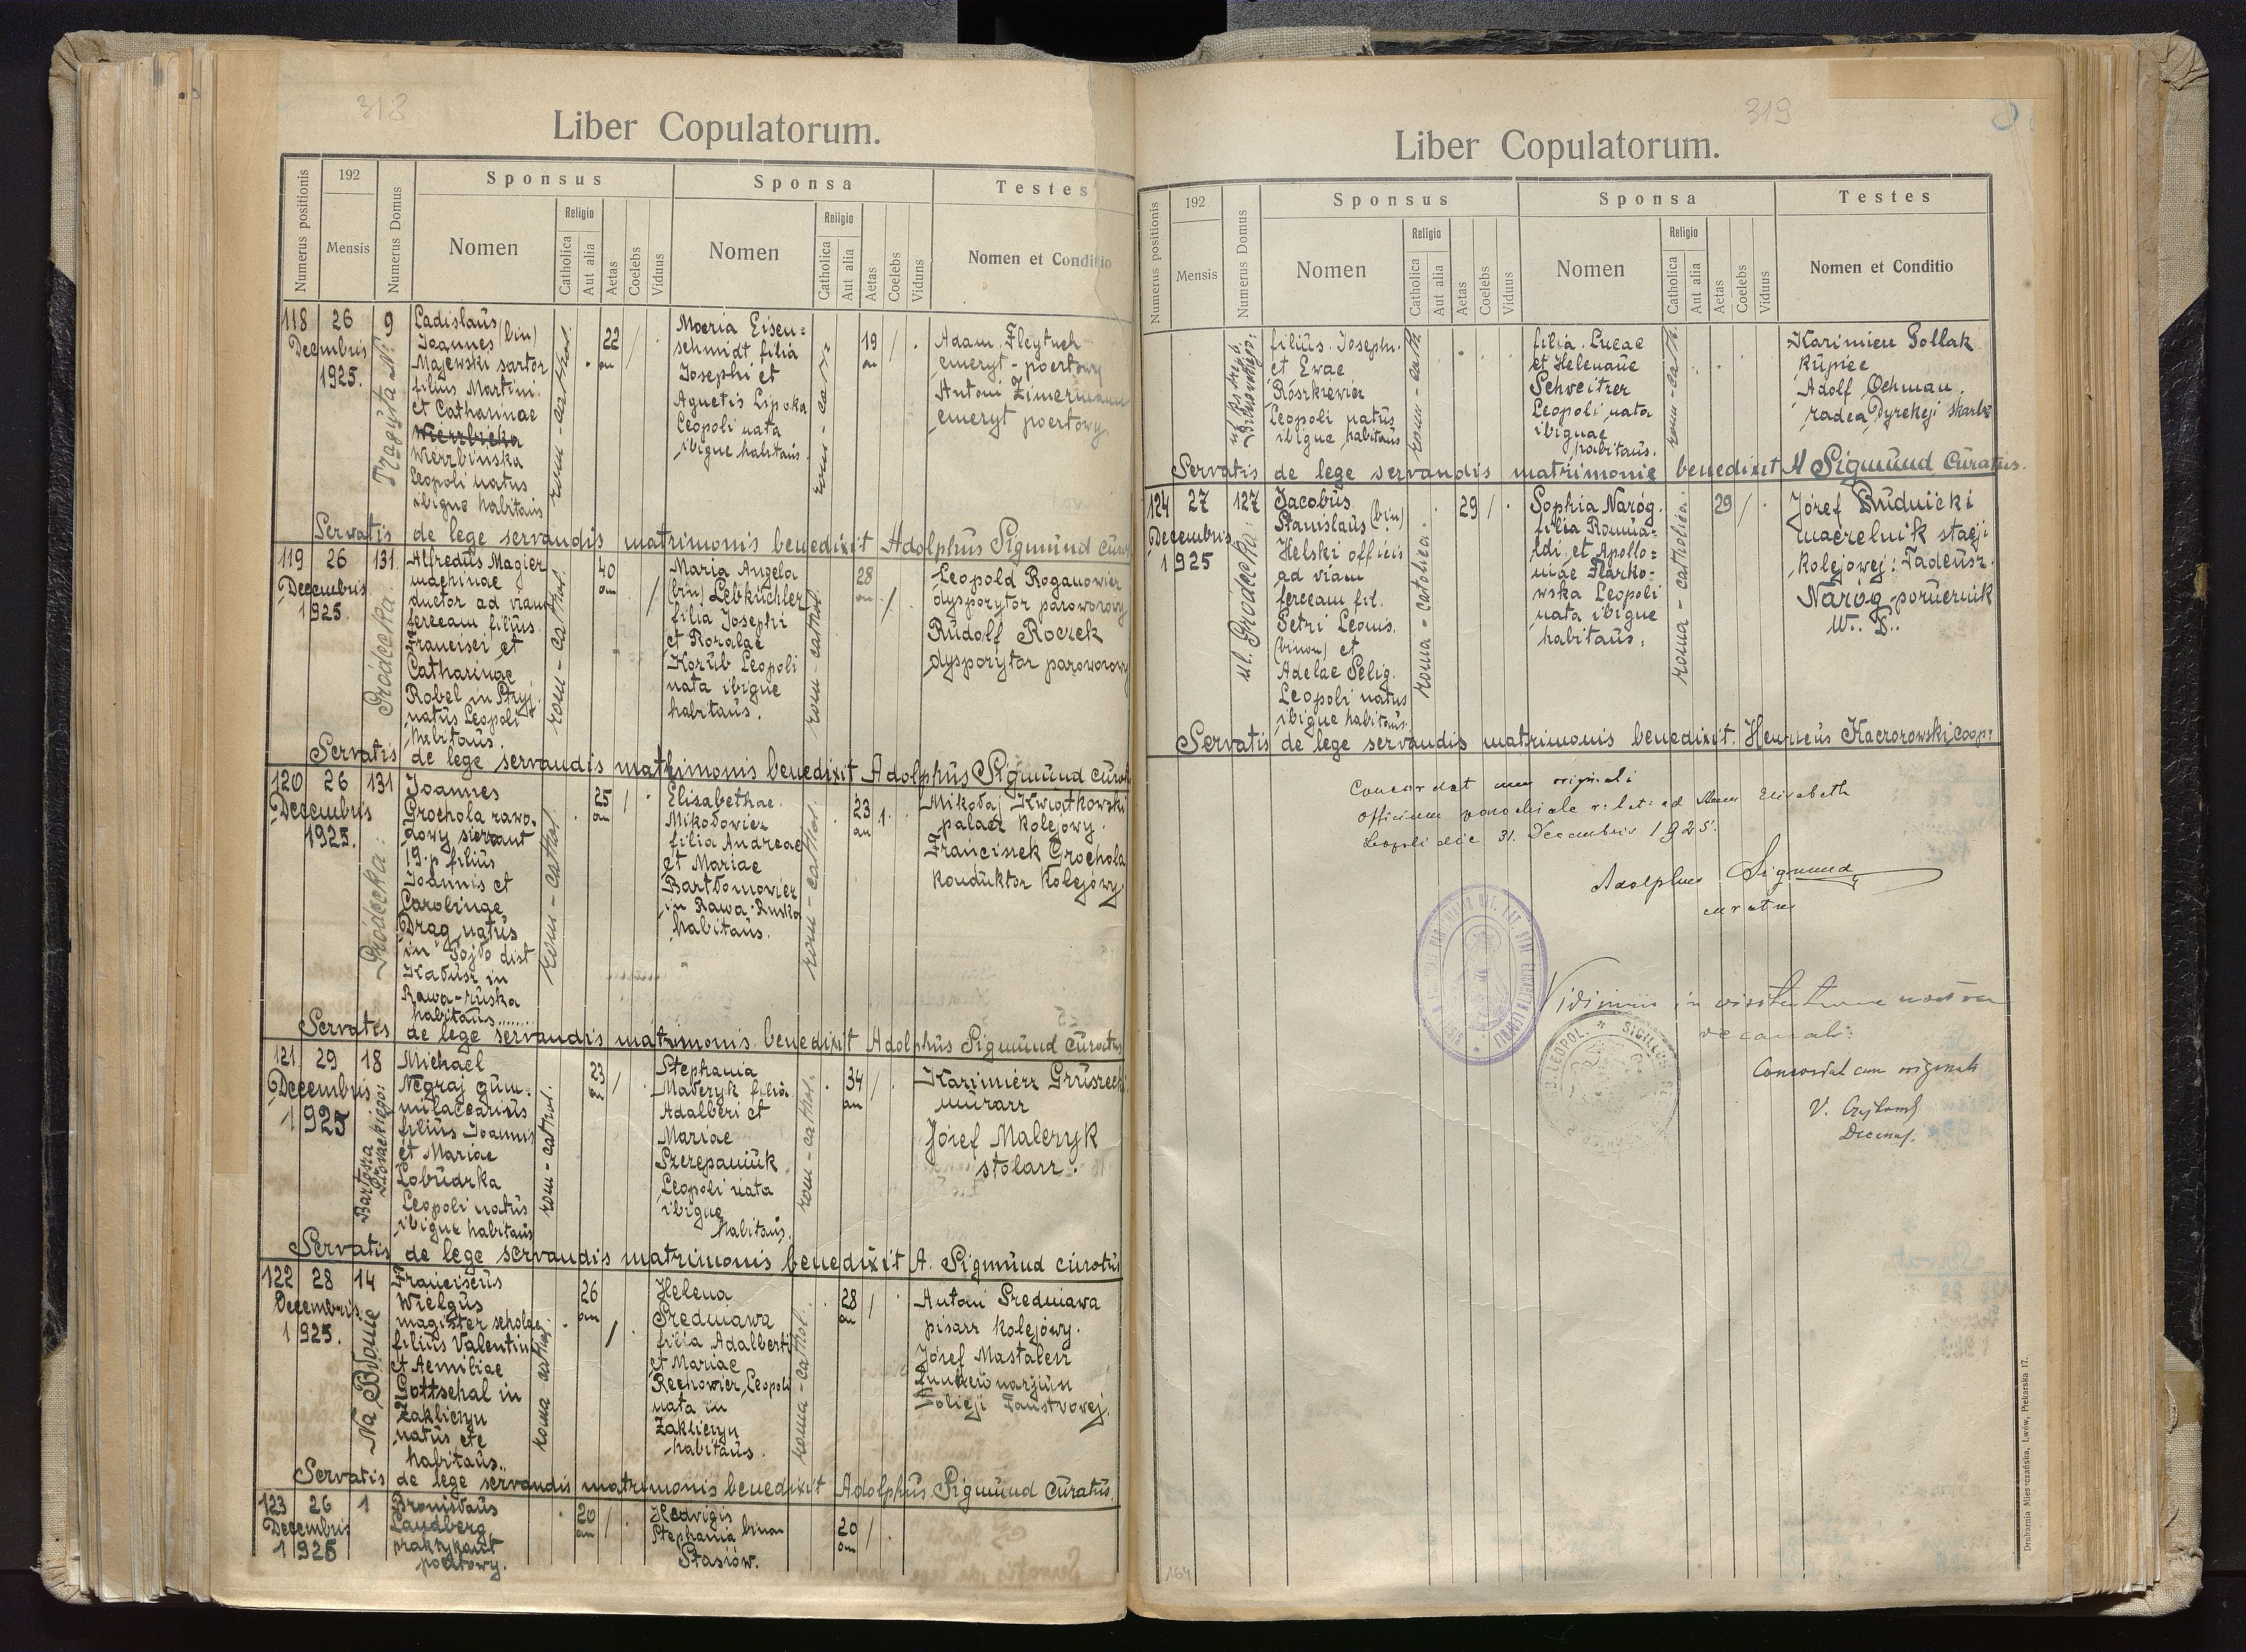 318
Liber Copulatorum.
Numerus positionis
192
Mensis
Numerus Domus
Sponsus
Nomen
Religio
Catholica
Aut alia
Aetas
Coelebs
Viduus
Sponsa
Nomen
Religio
Catholica
Aut alia
Aetas
Coelebs
Viduus
Testes
Nomen et Conditio
118 26 9
Decembris
1925.
Ladislaus
Joannes (bin)
Majewski sartor
filius Martini
et Catharinae
Wierzbicka
Wierzbinska
Leopoli natus
ibique habitans
rom-cathol.
22
an
Maria Eisen=
schmidt filia
Josephi et
Agnetis Lipska
Leopoli nata
ibique habitans.
19
an
Adam Fleytuch
emeryt-pocztowy
Antoni Zimermann
emeryt pocztowy.
Servatis de lege servandis matrimonis benedixit Adolphus Sigmund cura
119 26 131.
Decembris
1925.
Gródecka.
Alfredus Magier
machinae
ductor ad viam
ferream filius
Francisci et
Catharinae
Robel in Stryj
natus Leopoli
habitans.
rom-cathol.
40
an
Maria Angela
(bin) Lebküchler
filia Josephi
et Rozalae
Kozub Leopoli
nata ibique
habitans.
rom-cathol.
28
an
Leopold Roganowicz
dyspozytor parowozowy
Rudolf Roczek
dyspozytor parowozowy
Servatis de lege servandis matrimonis benedixit Adolphus Sigmund cura
120 26 131
Decembris
1925.
Gródecka:
Joannes
Grochola zawo.
dowy sierżant
19.p filius
Joannis et
Carolinae
Drag natus
in Dojło dist
Kałusz in
Rawa-ruska
habitans.......
rom-cathol.
25
an
Elisabethae
Mikołowicz
filia Andreae
et Mariae
Bartłomowicz
in Rawa-Ruska
habitans.
rom-cathol.
23
an
Mikołaj Kwiątkowski
palacz kolejowy.
Franciszek Grochola
konduktor kolejowy
Servatis de lege servandis matrimonis benedixit Adolphus Sigmund Curatus
121 29 18
Decembris
1925
Bartosza
Głowackiego:
Michael
Negraj gum.
milacearius
filius Joannis
et Mariae
Lobudzka
Leopoli natus
ibique habitans
rom-cathol.
23
an
Stephania
Malczyk filia
Adalberi et
Mariae
Szczepaniuk
Leopoli nata
ibique
habitans.
rom-cathol.
34
an
Kazimierz Gruszec
murarz
Józef Malczyk
stolarz.
Servatis de lege servandis matrimonis benedixit A. Sigmund curatus
122 28 14
Decembris
1925.
Na Błonie
Franciscus
Wielgus
magister scholae
filius Valentini
et Aemiliae
Gottschal in
Zakliczyn
natus etc
habitans..
roma cathol.
26
an
Helena
Predniawa
filia Adalberti
et Mariae
Rechowicz Leopoli
nata in
Zakliczyn
habitans.
roma-cathol.
28
an
Antoni Predniawa
pisarz kolejowy.
Józef Mastalerz
Funkcionarjun
Policji Państwowej.
Servatis de lege servandis matrimonis benedixit Adolphus Sigmund Curatus
123 26 1
Decembris
1925
Bronislaus
Landberg
praktykant
pocztowy.
20
an
Hedvigis
Stephania binom
Stasiów.
20
an
319
Liber Copulatorum.
Numerus positionis
192
Mensis
Numerus Domus
Sponsus
Nomen
Religio
Catholica
Aut alia
Aetas
Coelebs
Viduus
Sponsa
Nomen
Religio
Catholica
Aut alia
Aetas
Coelebs
Viduus
Testes
Nomen et Conditio
filius Josephi
et Evae
Rószkiewicz
Leopoli natus
ibique habitans
rom-cath
filia Lucae
et Helenaue
Schveitzer
Leopoli nata
ibiquae
habitans.
rom-cath.
Kazimierz Pollak
kupiec
Adolf Ochman,
radca Dyrekcji skarb
Servatis de lege servandis matrimonie benedixit A Sigmund Curatus.
124 27 127
Decembris
1925
ul. Gródecka:
Jacobus
Stanislaus (bin)
Helski officis
ad viam
ferream fil.
Petri Leonis.
(binom) et
Adelae Selig
Leopoli natus
ibique habitans.
roma-catolica.
29
Sophia Naróg
filia Romua=
ldi et Apollo=
niae Tlarko=
wska Leopoli
nata ibique
habitans.
roma-catholica.
29
Józef Rudnicki
naczelnik stacji
kolejowej: Tadeusz
Naróg-porucznik
W.. P..
Servatis de lege servandis matrimonis benedixit. Henricus Kaczorowski Coop:
Concordat cum originali
Officium parochiale r: lat: ad Elisabeth
Leopoli die 31. Decembris 1925.
Adolphus Sigmund
curatus
Vidimus in visitatione nostra
decanali:
Concordat cum originali
Decanus.
164
Drukarnia Mieszczańska, Lwów, Piekarska 17.